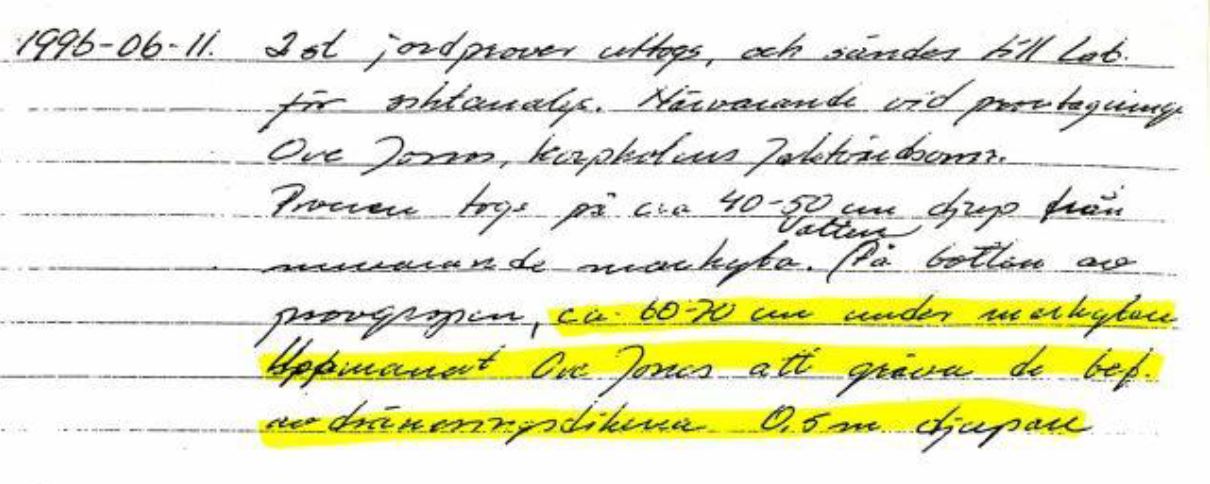 1996-06-11. 2 st jordprover uttogs, och sändes till Lab.
för siktanalys. Närvarande vid provtagning
Ove Jonss,
Proven togs på cia 40-50 cm djup från
Vatten
nuvarande markyta. (På botten av
provgropen, ca 60-70 cm under markytan
Uppmanat Ove Jonss att gräva de bef.
avdräneringsdikena 0,5 m djupare